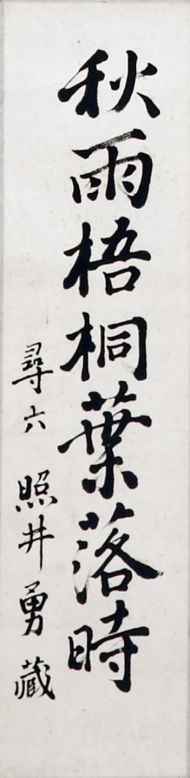 秋雨梧桐葉落時
尋六 照井勇藏